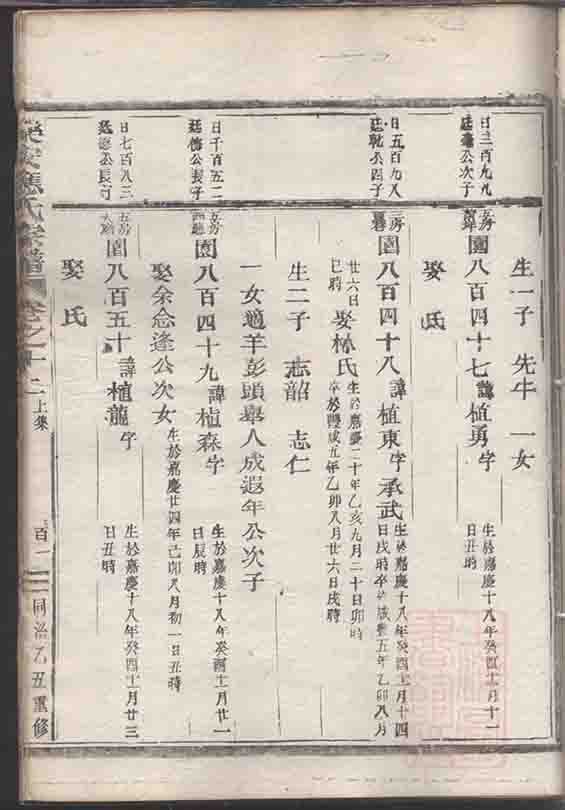 生一子 先牛 一女
日三百九九
廷臺公次子
五房
園八百四十七諱植勇字
生於嘉慶十八年癸酉十二月十一
日丑時
娶氏
日五百九八
廷乾公四子
三房
園八百四十八諱植東字承武
生於嘉慶十八年癸酉十一月十四
日戌時卒於咸豐五年乙卯八月
廿六日
巳時
娶林氏
生於嘉慶二十年乙亥九月二十日卯時
卒於咸豐五年乙卯八月廿六日戌時
生二子 志韶 志仁
一女適羊彭頭舉人成遐年公次子
日千百五二
廷德公長子
五房
園八百四十九諱植森字
生於嘉慶十八年癸酉十一月廿一
日辰時
娶余念逢公次女
生於嘉慶廿四年己卯八月初一日丑時
日七百八三
廷德公長子
五房
園八百五十諱植龍字
生於嘉慶十八年癸酉十一月廿三
日丑時
娶氏
樂安應氏宗譜 卷之十二上集 百一 同治乙丑重修